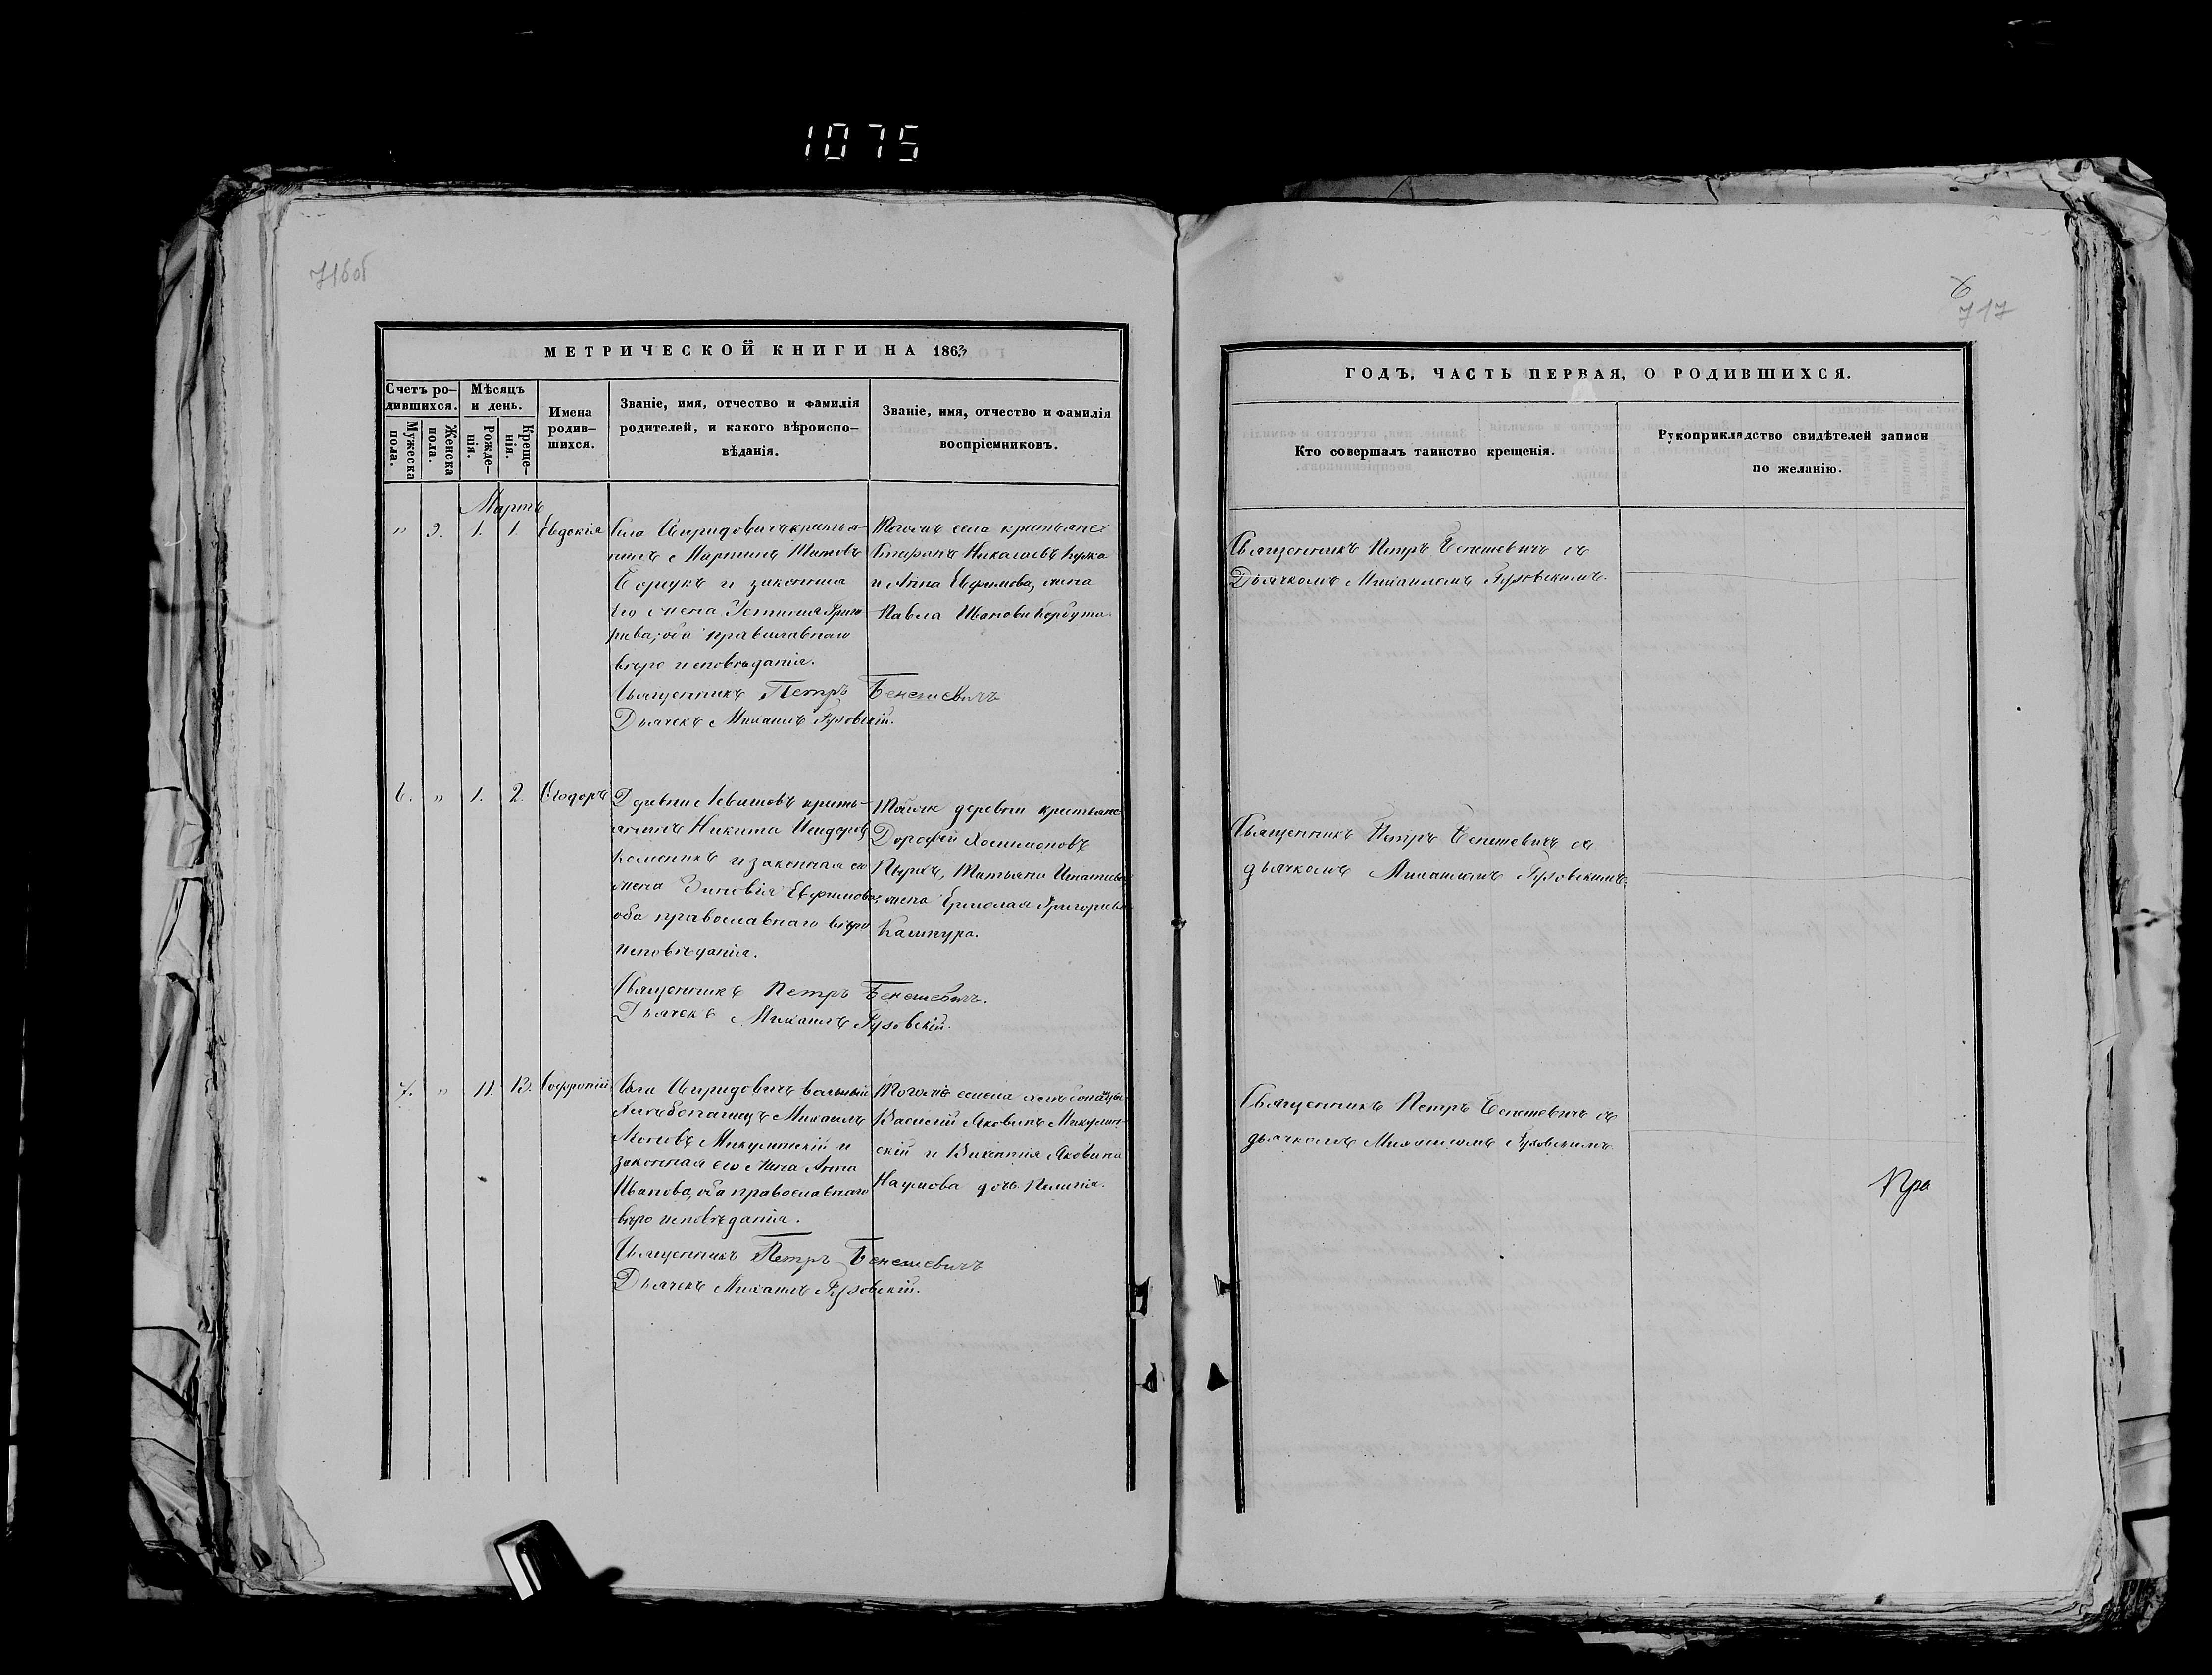 1075
716об
МЕТРИЧЕСКОЙ КНИГИ НА 1863
Счетъ ро-
дившихся.
Мужеска
пола.
Женска
пола.
Мѣсяцъ
и день.
Рожде-
нія.
Креще-
нія.
Имена
родив-
шихся.
Званіе, имя, отчество и фамилія
родителей, и какого вѣроиспо-
вѣданія.
Званіе, имя, отчество и фамилія
воспріемниковъ.
Мартъ
" 3. 1. 1. Евдокія
Села Спридовичъ крестья-
нинъ Мартинъ Титовъ
и законная
его жена Устинія Григо
рьева, оба православнаго
вѣро исповѣданія.
Священникъ Петръ Бенешевичъ
Дьячекъ Михаилъ Гузовскій.
Тогожъ села крестьяне:
Николаевъ
и Анна Евфимова, жена
Павла Иванова Корбута.
6. " 1. 2. Ѳеодоръ
Деревни Левашовъ кресть-
янинъ Никита Исидоровъ
и законная его
жена Зиновія Евфимова,
оба православнаго вѣро
исповѣданія.
Священникъ Петръ Бенешевичъ.
Дьячекъ Михаилъ Гузовскій.
Тойже деревни крестьяне
Дорофей
Татьяна Игнатьева
жена Ермолая Григорьева
7. " 11. 13. Софроній
Села Спридовичъ вольный
Михаилъ
Микулинскій и
законная его жена Анна
Иванова, оба православнаго
вѣро исповѣданія.
Священникъ Петръ Бенешевичъ
Дьячекъ Михаилъ Гузовскій.
Тогоже селенія
Василій Яковинъ Микулин-
скій и Викентія Яковина
Наумова дочь Пелагія.
6
717
ГОДЪ, ЧАСТЬ ПЕРВАЯ, О РОДИВШИХСЯ.
Кто совершалъ таинство крещенія.
Рукоприкладство свидѣтелей записи
по желанію.
Священникъ Петръ Бенешевичъ съ
Дьячкомъ Михаиломъ Гузовскимъ.
Священникъ Петръ Бенешевичъ съ
дьячкомъ Михаиломъ Гузовскимъ.
Священникъ Петръ Бенешевичъ съ
дьячкомъ Михаиломъ Гузовскимъ.